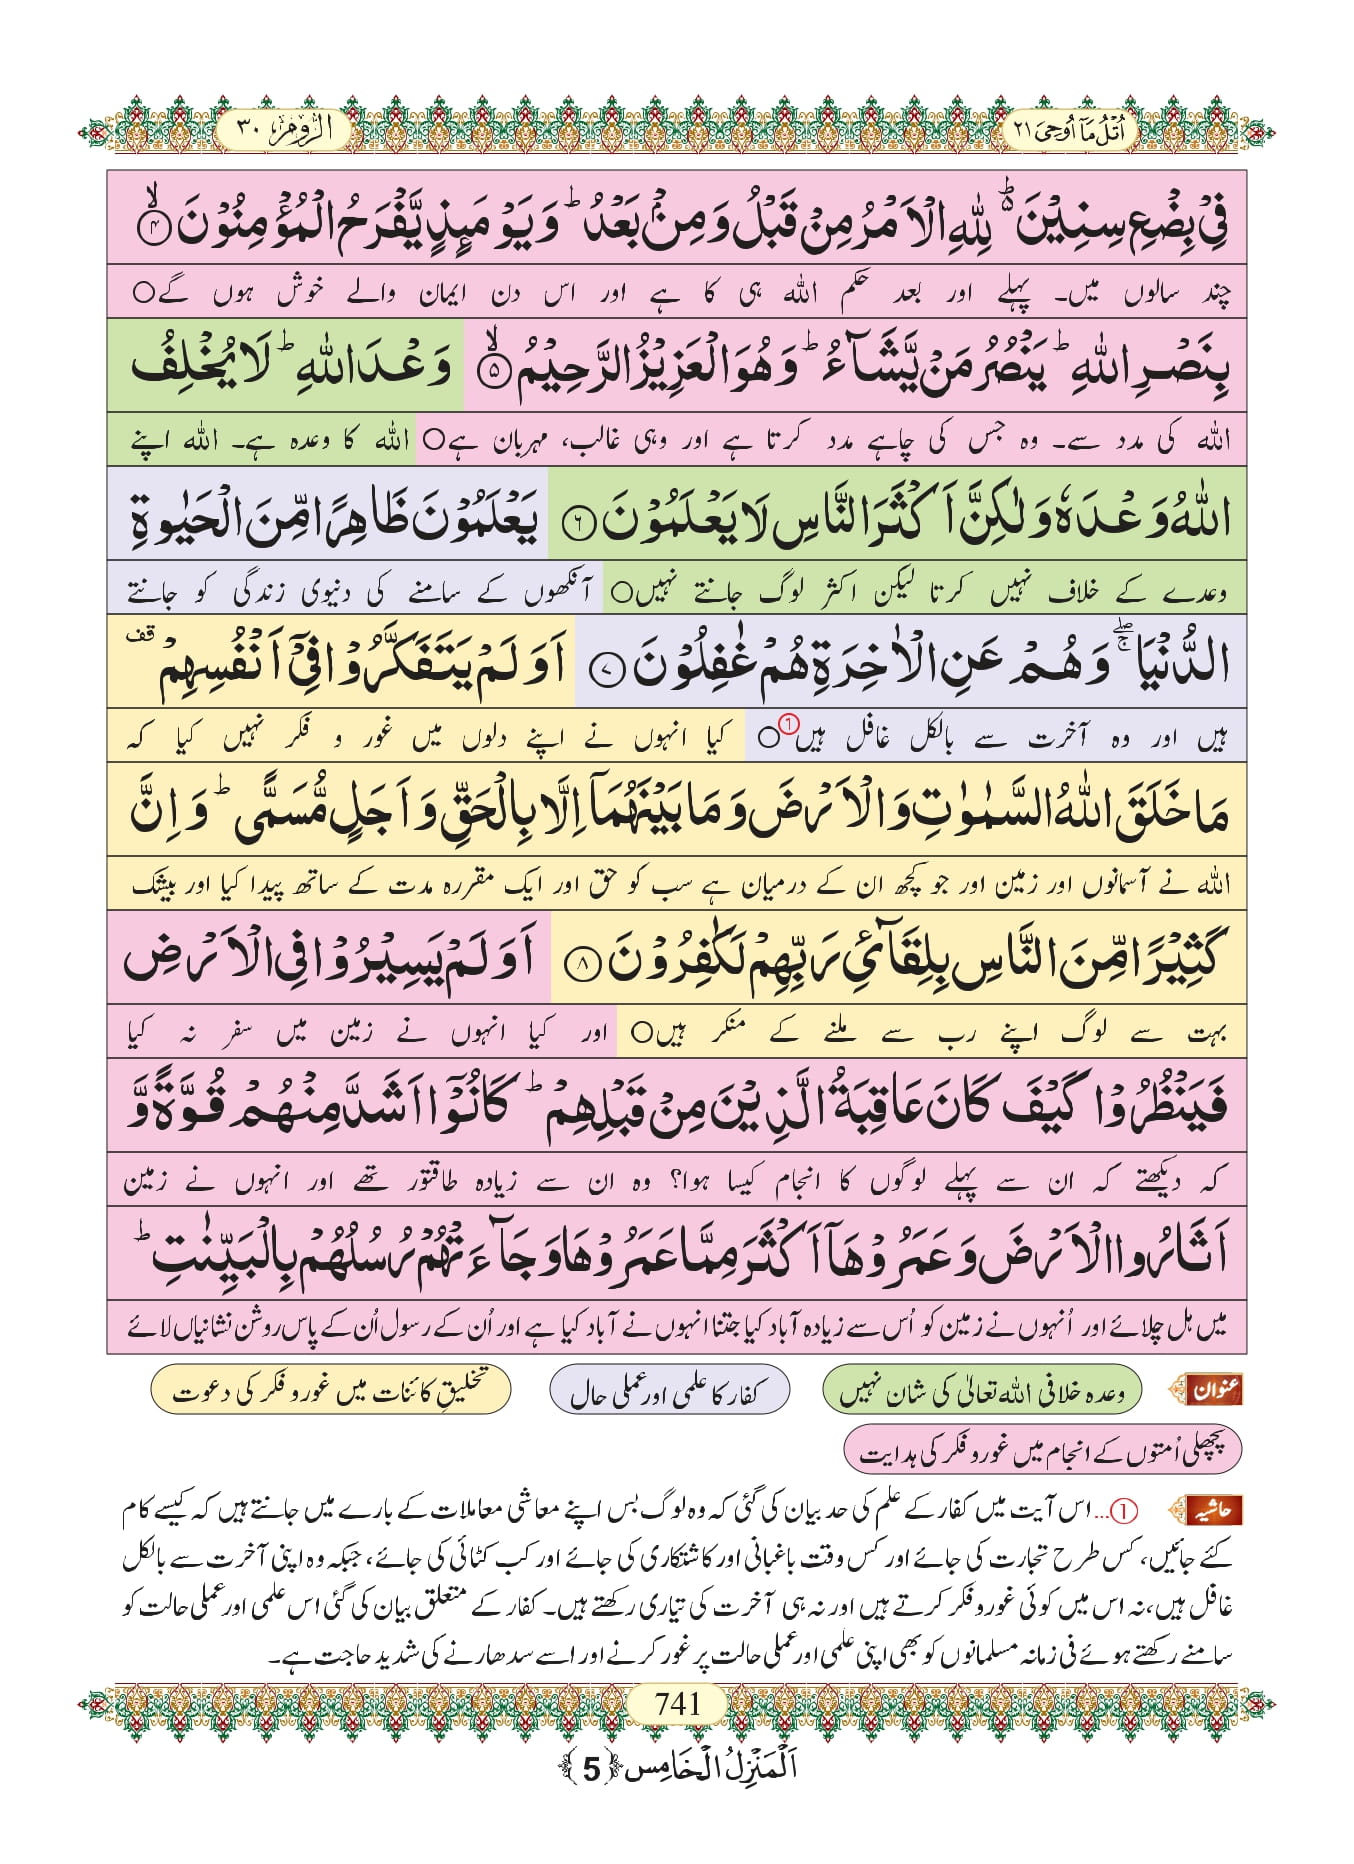 اُتۡلُ مَاۤ اُوۡحِیَ ۲۱
الرُّوۡم ۳۰
فِیۡ بِضۡعِ سِنِیۡنَ ۬ؕ لِلّٰهِ الۡاَمۡرُ مِنۡ قَبۡلُ وَ مِنۡۢ بَعۡدُ ؕ وَ یَوۡمَئِذٍ یَّفۡرَحُ الۡمُؤۡمِنُوۡنَ ۙ﴿۴﴾
چند سالوں میں۔ پہلے اور بعد حکم اللہ ہی کا ہے اور اس دن ایمان والے خوش ہوں گے○
بِنَصۡرِ اللّٰهِ ؕ یَنۡصُرُ مَنۡ یَّشَآءُ ؕ وَ هُوَ الۡعَزِیۡزُ الرَّحِیۡمُ ۙ﴿۵﴾ وَعۡدَ اللّٰهِ ؕ لَا یُخۡلِفُ
اللہ کی مدد سے۔ وہ جس کی چاہے مدد کرتا ہے اور وہی غالب، مہربان ہے○ اللہ کا وعدہ ہے۔ اللہ اپنے
اللّٰهُ وَعۡدَهٗ وَ لٰکِنَّ اَکۡثَرَ النَّاسِ لَا یَعۡلَمُوۡنَ ﴿۶﴾ یَعۡلَمُوۡنَ ظَاهِرًا مِّنَ الۡحَیٰوةِ
وعدے کے خلاف نہیں کرتا لیکن اکثر لوگ جانتے نہیں○ آنکھوں کے سامنے کی دنیوی زندگی کو جانتے
الدُّنۡیَا ۚۖ وَ هُمۡ عَنِ الۡاٰخِرَةِ هُمۡ غٰفِلُوۡنَ ﴿۷﴾ اَوَ لَمۡ یَتَفَکَّرُوۡا فِیۡۤ اَنۡفُسِهِمۡ قف
ہیں اور وہ آخرت سے بالکل غافل ہیں①○ کیا انہوں نے اپنے دلوں میں غور و فکر نہیں کیا کہ
مَا خَلَقَ اللّٰهُ السَّمٰوٰتِ وَ الۡاَرۡضَ وَ مَا بَیۡنَهُمَاۤ اِلَّا بِالۡحَقِّ وَ اَجَلٍ مُّسَمًّی ؕ وَ اِنَّ
اللہ نے آسمانوں اور زمین اور جو کچھ ان کے درمیان ہے سب کو حق اور ایک مقررہ مدت کے ساتھ پیدا کیا اور بیشک
کَثِیۡرًا مِّنَ النَّاسِ بِلِقَآئِ رَبِّهِمۡ لَکٰفِرُوۡنَ ﴿۸﴾ اَوَ لَمۡ یَسِیۡرُوۡا فِی الۡاَرۡضِ
بہت سے لوگ اپنے رب سے ملنے کے منکر ہیں○ اور کیا انہوں نے زمین میں سفر نہ کیا
فَیَنۡظُرُوۡا کَیۡفَ کَانَ عَاقِبَةُ الَّذِیۡنَ مِنۡ قَبۡلِهِمۡ ؕ کَانُوۡۤا اَشَدَّ مِنۡهُمۡ قُوَّةً وَّ
کہ دیکھتے کہ ان سے پہلے لوگوں کا انجام کیسا ہوا؟ وہ ان سے زیادہ طاقتور تھے اور انہوں نے زمین
اَثَارُوا الۡاَرۡضَ وَ عَمَرُوۡهَاۤ اَکۡثَرَ مِمَّا عَمَرُوۡهَا وَ جَآءَتۡهُمۡ رُسُلُهُمۡ بِالۡبَیِّنٰتِ ؕ
میں ہل چلائے اور اُنہوں نے زمین کو اُس سے زیادہ آباد کیا جتنا انہوں نے آباد کیا ہے اور اُن کے رسول اُن کے پاس روشن نشانیاں لائے
عنوان وعدہ خلافی اللہ تعالیٰ کی شان نہیں کفار کا علمی اور عملی حال تخلیقِ کائنات میں غور و فکر کی دعوت
پچھلی اُمتوں کے انجام میں غور و فکر کی ہدایت
حاشیہ ①... اس آیت میں کفار کے علم کی حد بیان کی گئی کہ وہ لوگ بس اپنے معاشی معاملات کے بارے میں جانتے ہیں کہ کیسے کام
کئے جائیں، کس طرح تجارت کی جائے اور کس وقت باغبانی اور کاشتکاری کی جائے اور کب کٹائی کی جائے، جبکہ وہ اپنی آخرت سے بالکل
غافل ہیں، نہ اس میں کوئی غور و فکر کرتے ہیں اور نہ ہی آخرت کی تیاری رکھتے ہیں۔ کفار کے متعلق بیان کی گئی اس علمی اور عملی حالت کو
سامنے رکھتے ہوئے فی زمانہ مسلمانوں کو بھی اپنی علمی اور عملی حالت پر غور کرنے اور اسے سدھارنے کی شدید حاجت ہے۔
741
اَلۡمَنۡزِلُ الۡخَامِس ﴿5﴾